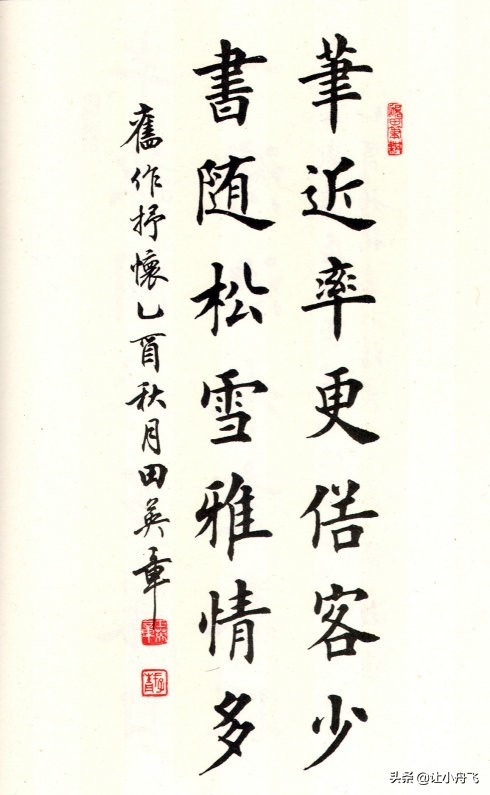 筆近率更俗客少
書随松雪雅情多
舊作抒懷乙酉秋月田英章
头条 @让小舟飞